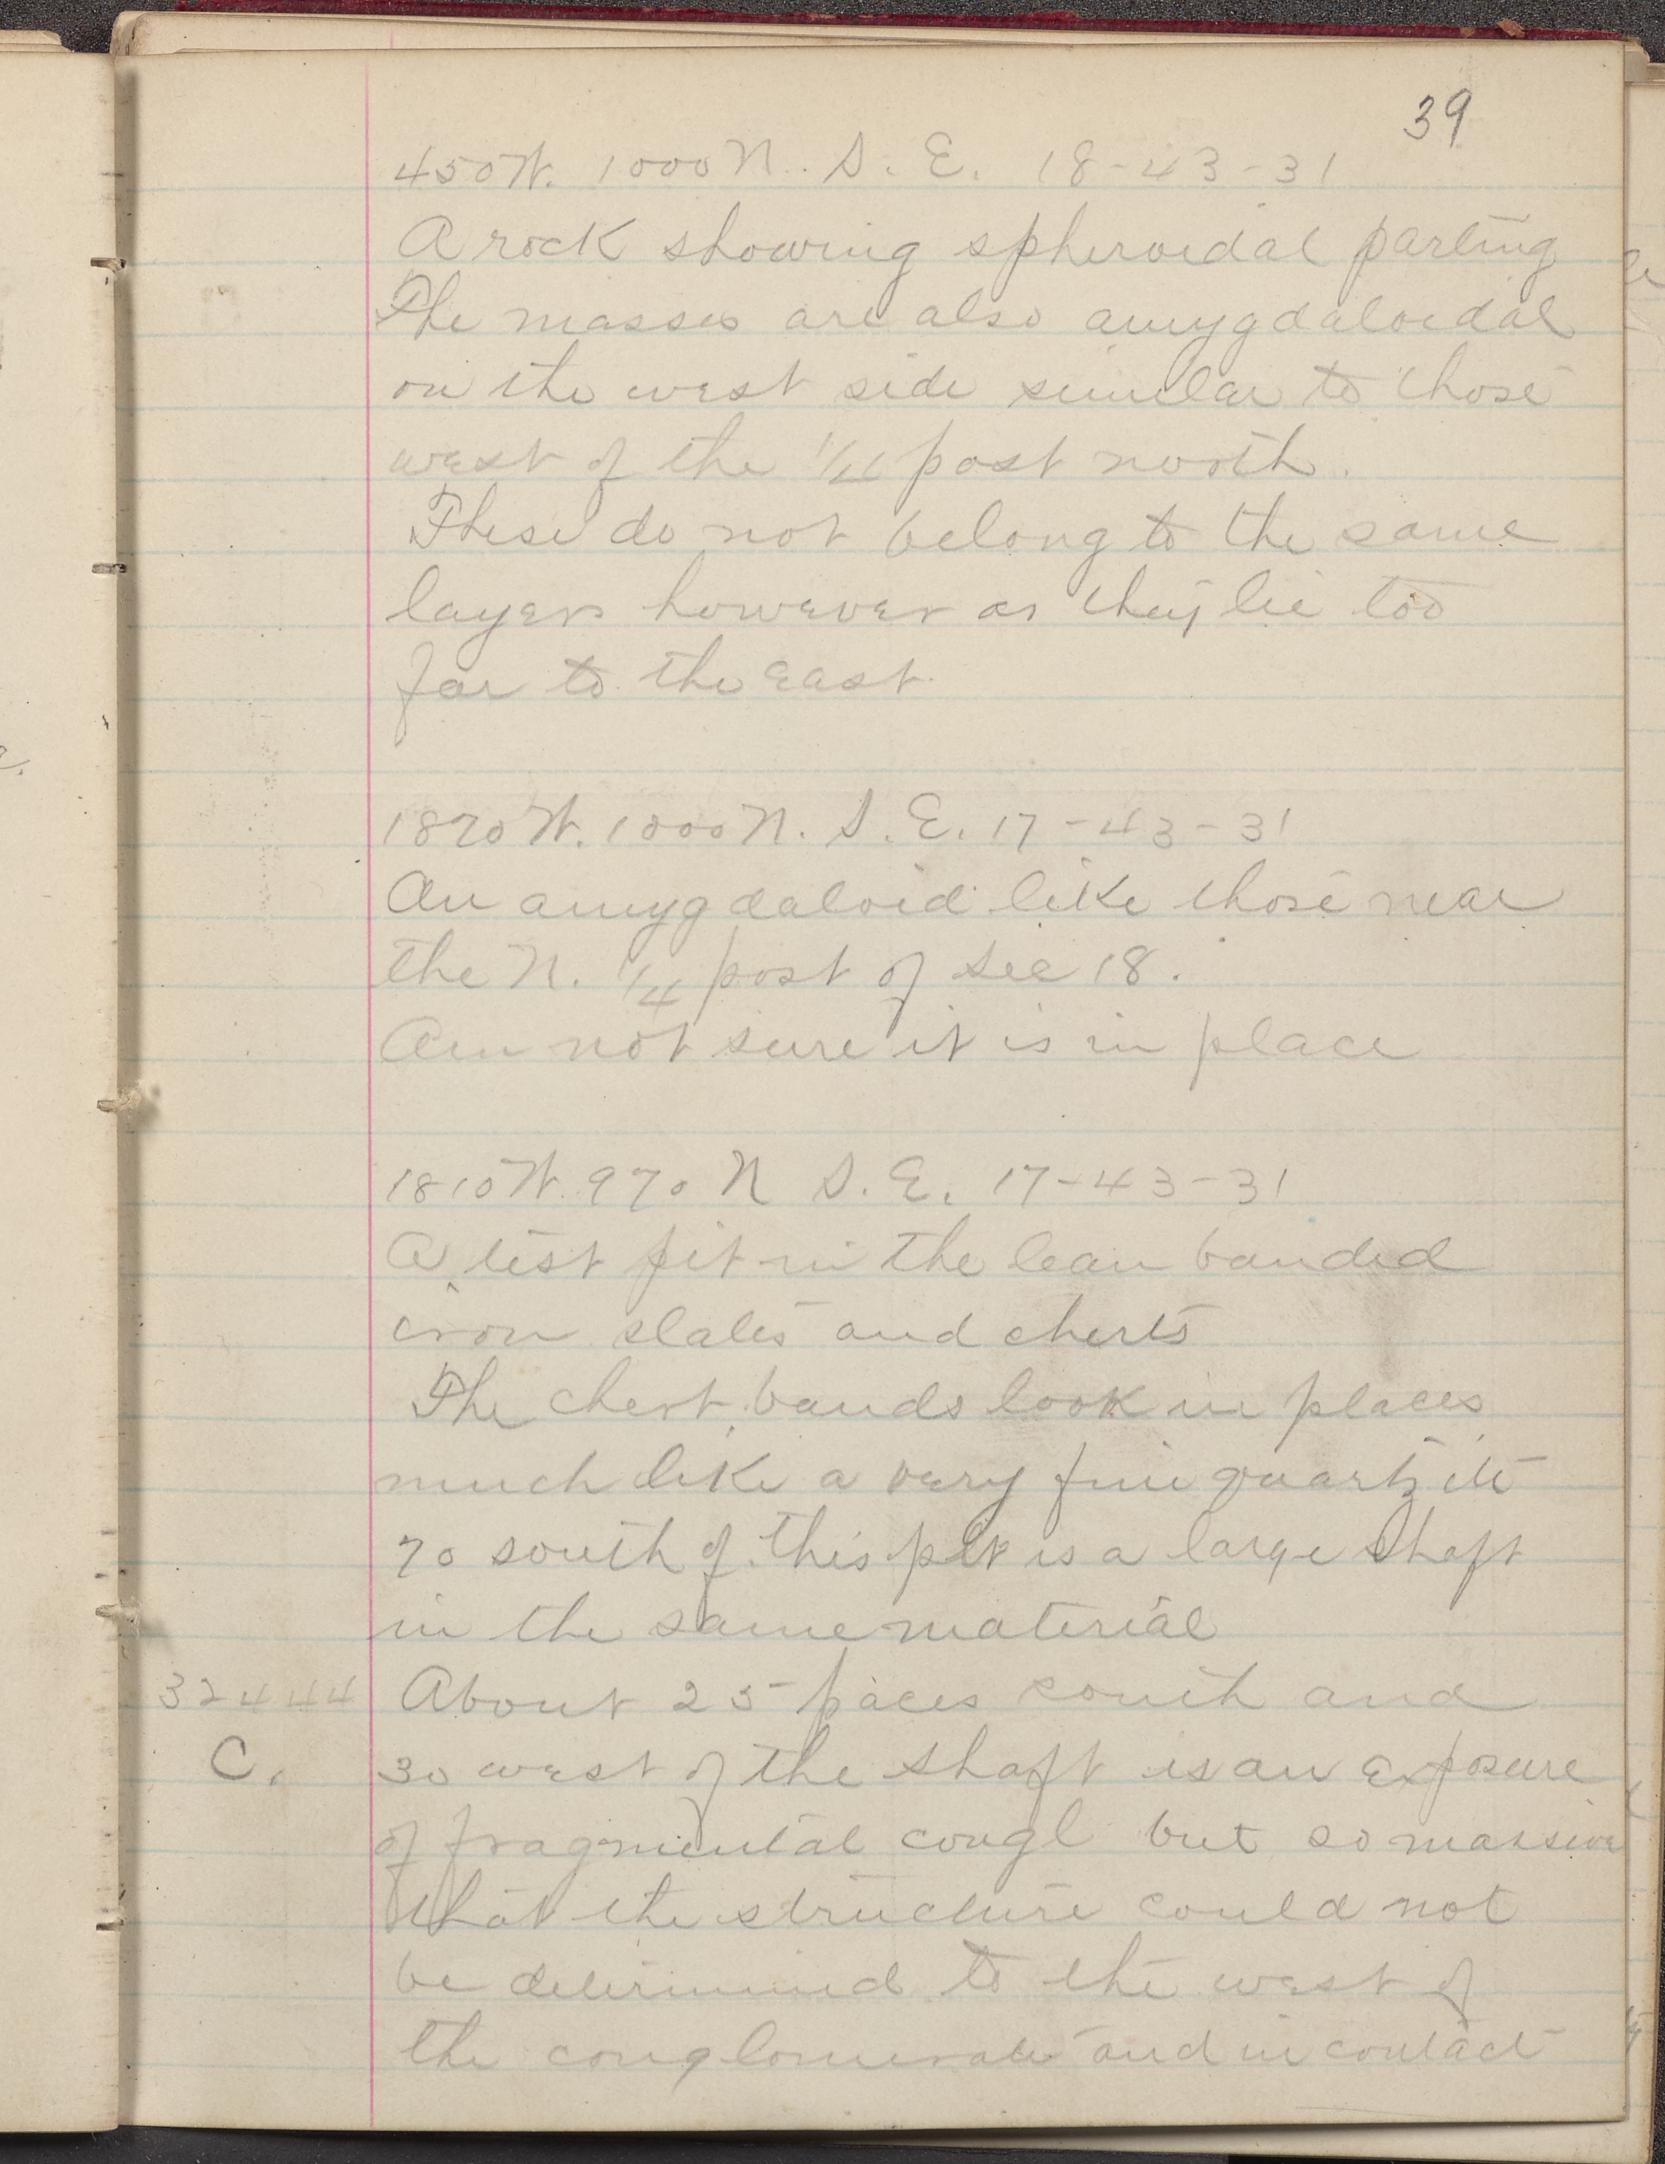 39
450 W. 1000 N. S. E. 18-43-31
A rock showing spheroidal parting
The masses are also amygdaloidal
on the west side similar to those
west of the 1/4 post north.
These do not belong to the same
layers however as they lie too
far to the east.
1820 W. 1000 N. S. E. 17-43-31
An amygdaloid like those near
the N. 1/4 post of sec 18.
Am not sure it is in place
1810 W. 970 N S. E. 17-43-31
A test pit in the lean banded
iron slates and cherts
The chert bands look in places
much like a very fine quartzite
70 south of this pit is a large shaft
in the same material
32444 About 25 paces south and
C. 30 west of the shaft is an exposure
of fragmental congl but so massive
that the structure could not
be determined to the west of
the conglomerate and in contact